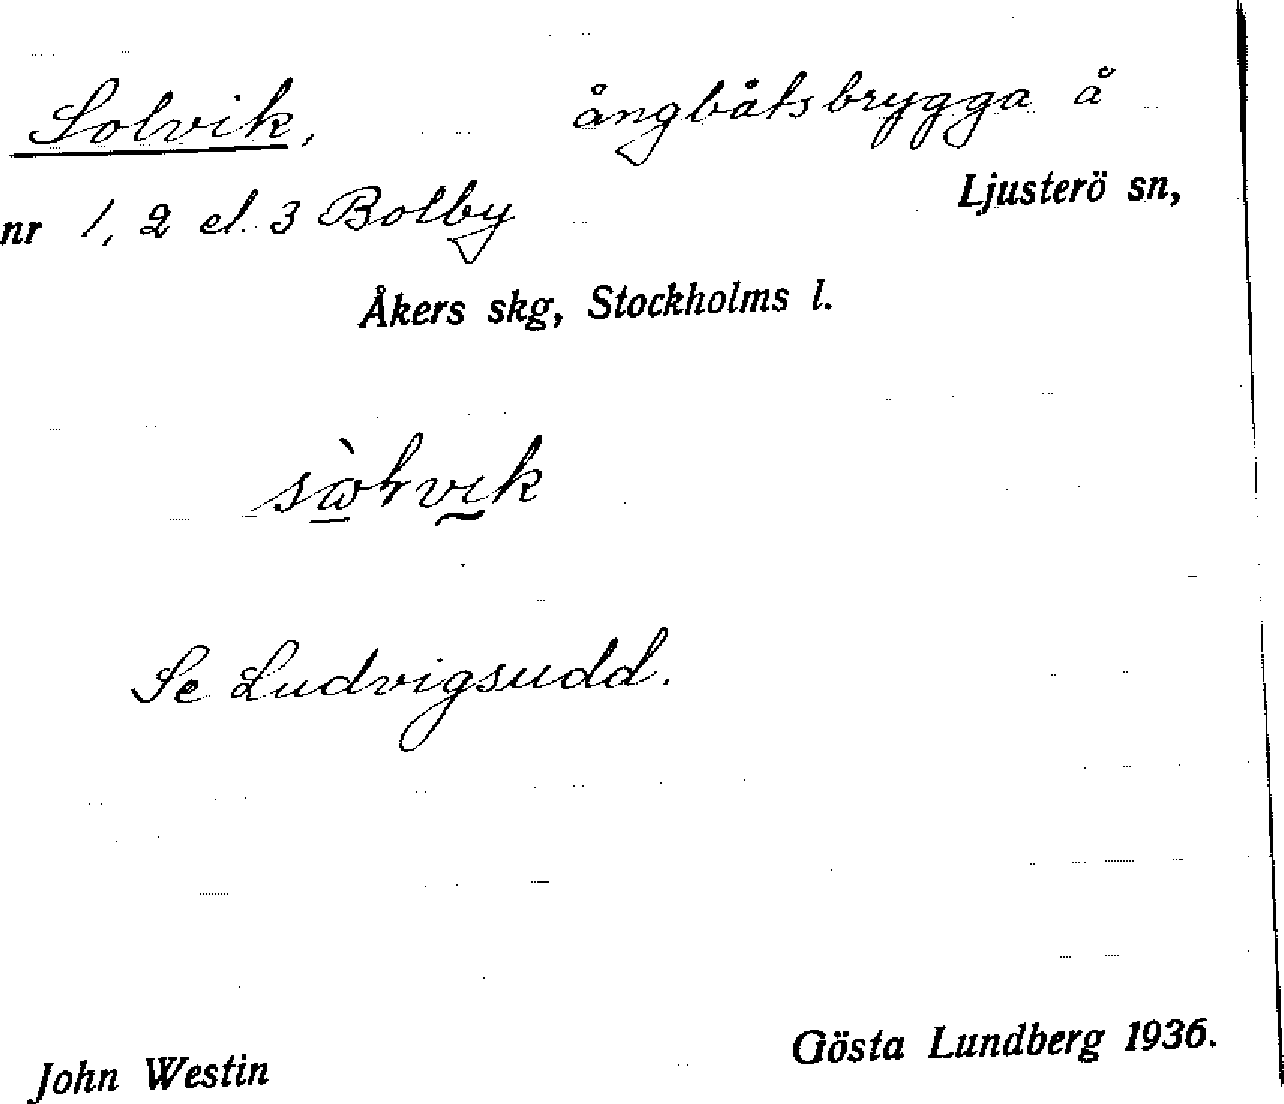 Solvik, ångbåtsbrygga å
nr 1, 2 el. 3 Bolby Ljusterö sn,
Åkers skg, Stockholms l.
Se Ludvigsudd.
John Westin Gösta Lundberg 1936.